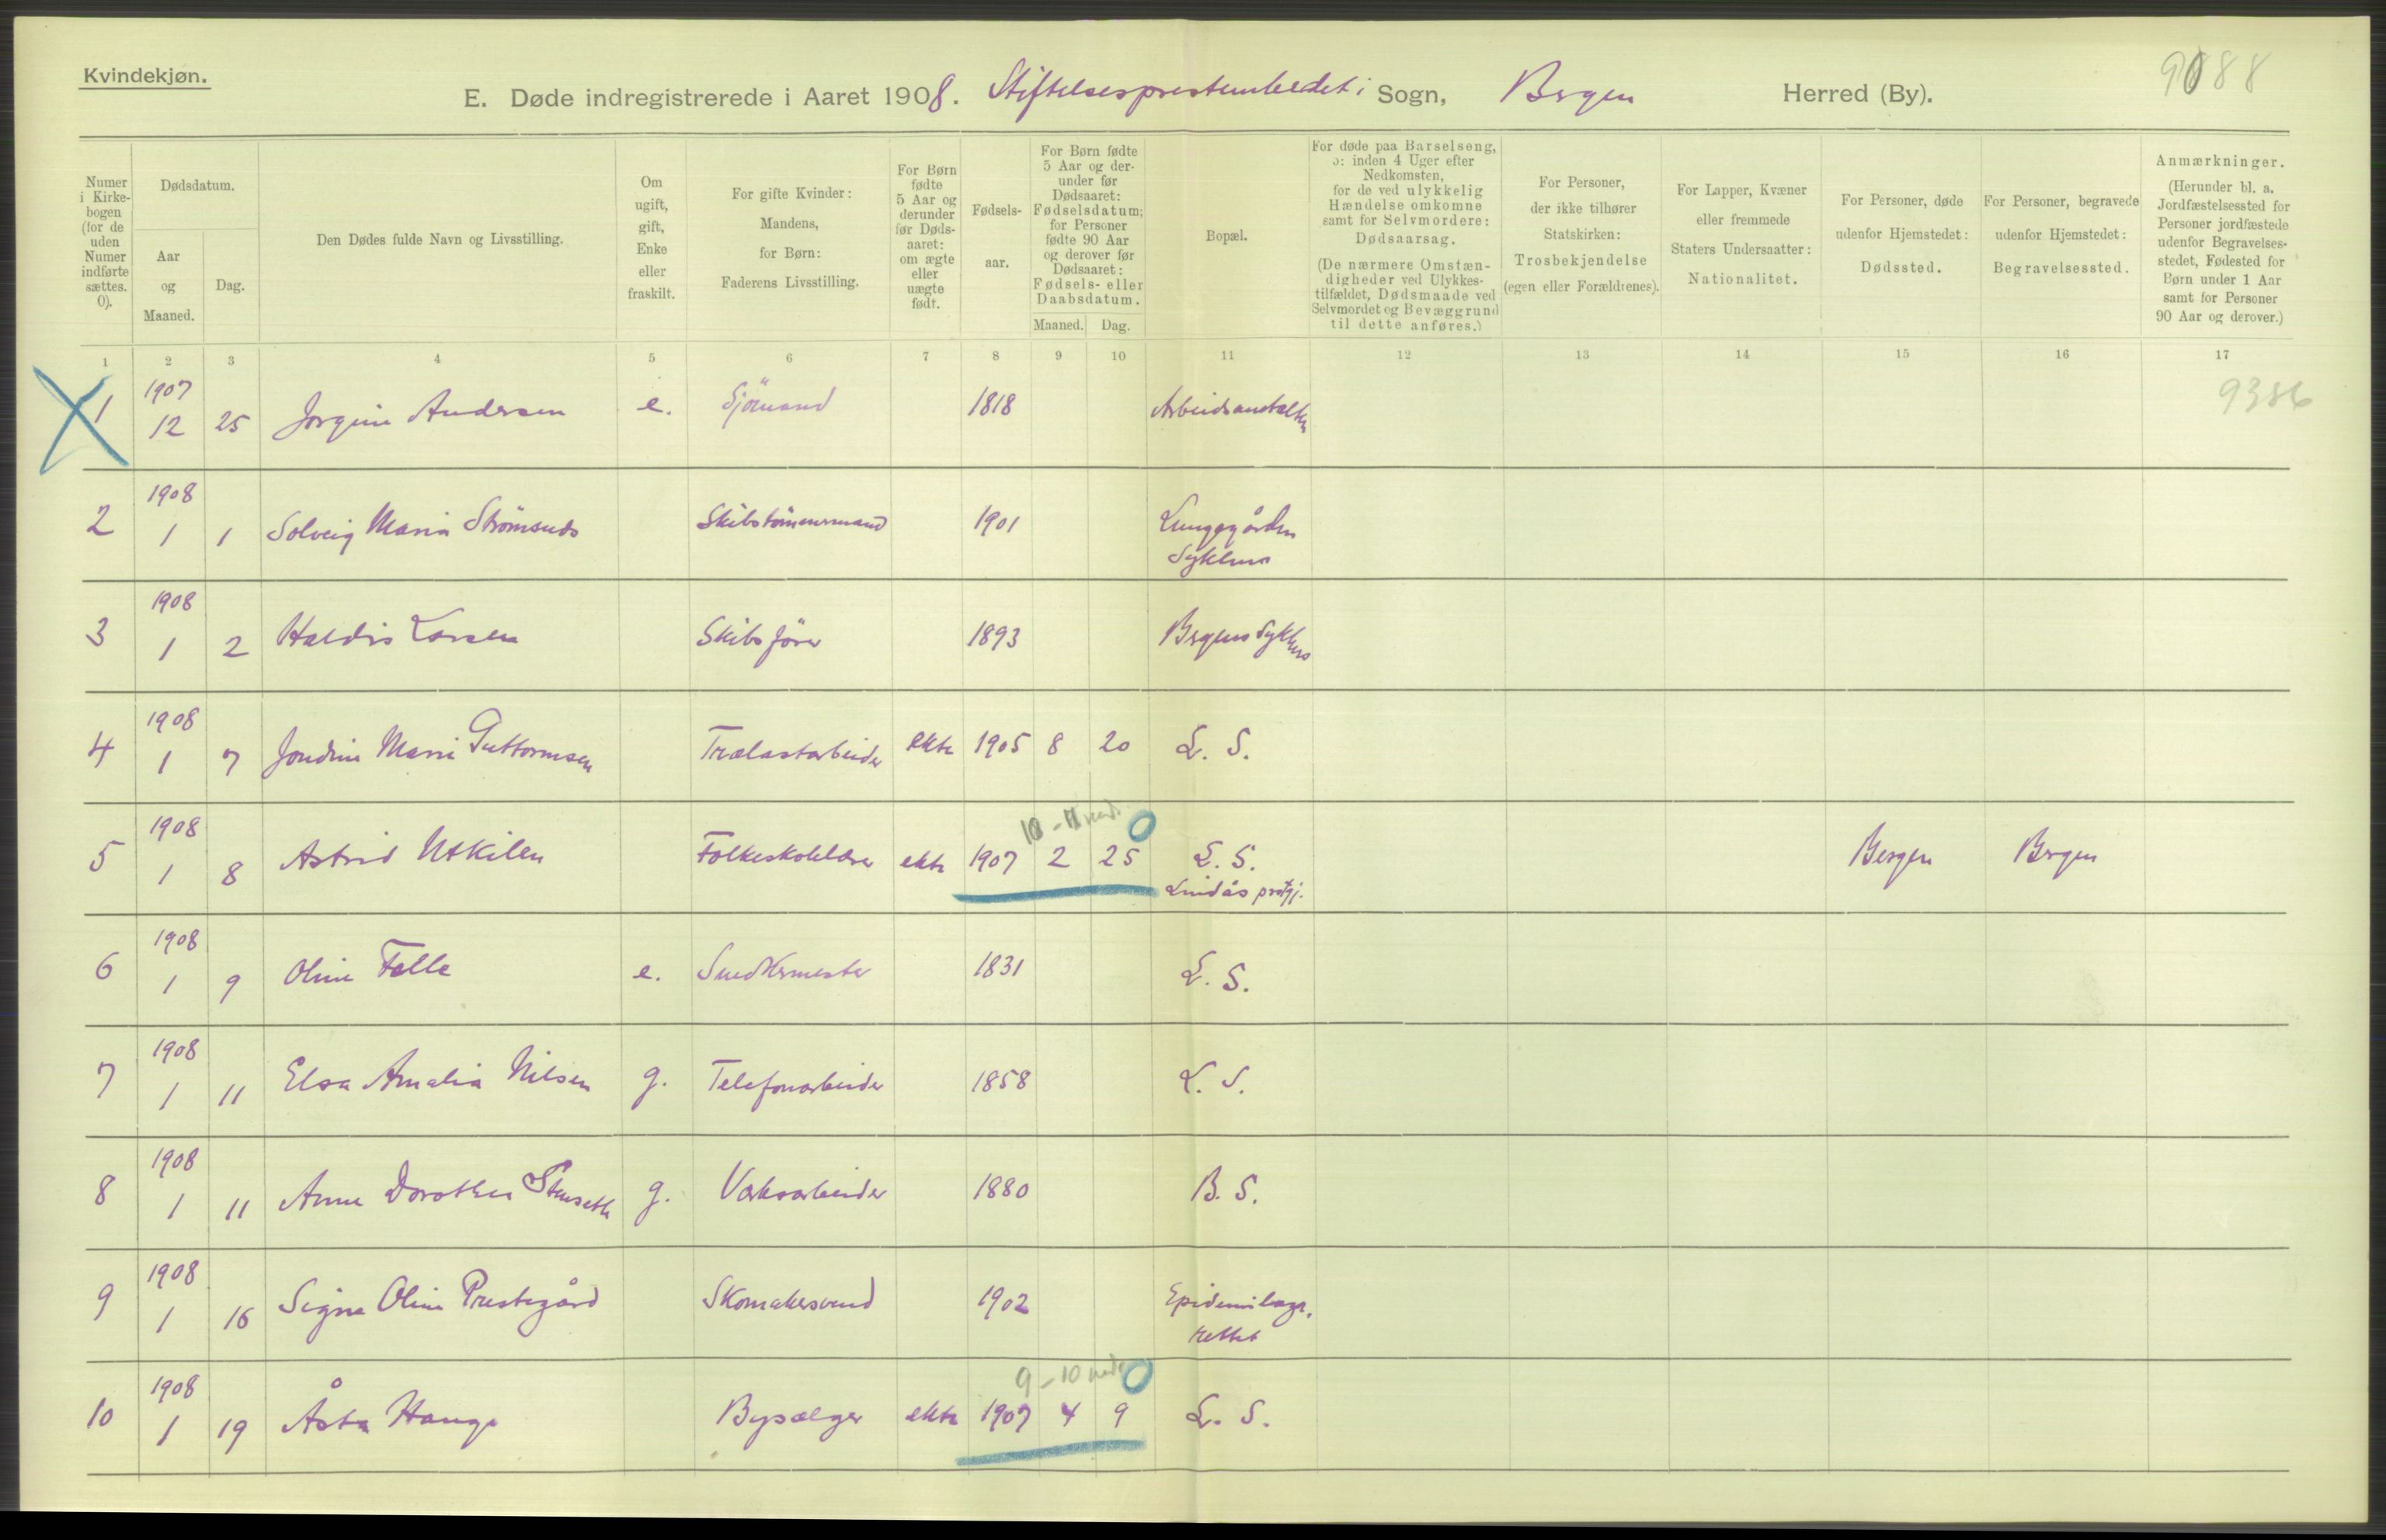 Kvindekjøn.
E. Døde indregistrerede i Aaret 1908. Stiftelsesprestembedet i Sogn, Bergen Herred (By).
9088
Numer i Kirke-bogen (for de uden Numer indførte sættes. 0).
Dødsdatum.
Aar og Maaned.
Dag.
Den Dødes fulde Navn og Livsstilling.
Om ugift, gift, Enke eller fraskilt.
For gifte Kvinder: Mandens, for Børn: Faderens Livsstilling.
For Børn fødte 5 Aar og derunder før Døds-aaret: om ægte eller uægte født.
Fødsels-aar.
For Børn fødte 5 Aar og der-under før Dødsaaret: Fødselsdatum; for Personer fødte 90 Aar og derover før Dødsaaret: Fødsels- eller Daabsdatum.
Maaned. Dag.
Bopæl.
For døde paa Barselseng, ɔ: inden 4 Uger efter Nedkomsten, for de ved ulykkelig Hændelse omkomne samt for Selvmordere: Dødsaarsag. (De nærmere Omstæn-digheder ved Ulykkes-tilfældet, Dødsmaade ved Selvmordet og Bevæggrund til dette anføres.)
For Personer, der ikke tilhører Statskirken: Trosbekjendelse (egen eller Forældrenes).
For Lapper, Kvæner eller fremmede Staters Undersaatter: Nationalitet.
For Personer, døde udenfor Hjemstedet: Dødssted.
For Personer, begravede udenfor Hjemstedet: Begravelsessted.
Anmærkninger. (Herunder bl. a. Jordfæstelsessted for Personer jordfæstede udenfor Begravelses-stedet, Fødested for Børn under 1 Aar samt for Personer 90 Aar og derover.)
1 2 3 4 5 6 7 8 9 10 11 12 13 14 15 16 17
1 1907 12 25 Jorgine Andersen e. Sjömand 1818 Arbeidsanstalten 9386
2 1908 1 1 Solveig Maria Strömsnes Skibstömmermand 1901 Lungegården Sykehus
3 1908 1 2 Haldis Larsen Skibsförer 1893 Bergens Sykehus
4 1908 1 7 Jondine Marie Guttormsen Trælastarbeider ekte 1905 8 20 L. S.
10 - 11 mnd. 0
5 1908 1 8 Astrid Utkilen Folkeskolelærer ekte 1907 2 25 L. S. Bergen Bergen
Lindås prestgj.
6 1908 1 9 Oline Falle e. Snedkermester 1831 L. S.
7 1908 1 11 Elsa Amalia Nilsen g. Telefonarbeider 1858 L. S.
8 1908 1 11 Anna Dorothea Stenseth g. Verksarbeider 1880 B. S.
9 1908 1 16 Signe Oline Prestegård Skomakersvend 1902 Epidemilaza-rettet
9 - 10 mnd. 0
10 1908 1 19 Åsta Hauge Bysælger ekte 1907 4 9 L. S.